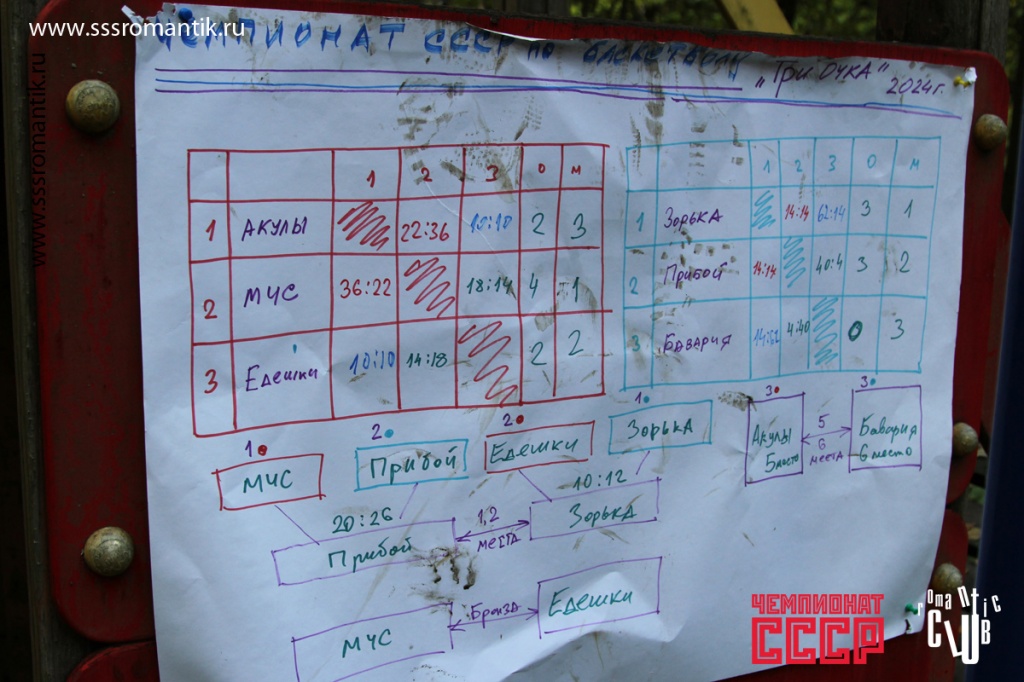 www.sssromantik.ru
www.sssromantik.ru
ЧЕМПИОНАТ СССР по баскетболу
„Три очка"
2024г.
1 2 3 О М
1 АКУЛЫ 22:36 10:10 2 3
2 МЧС 36:22 18:14 4 1
3 Едешки 10:10 14:18 2 2
1 2 3 О М
1 Зорька 14:14 62:14 3 1
2 Прибой 14:14 40:4 3 2
3 Бавария 14:62 4:40 0 3
1 2 2 1 3 3
МЧС Прибой Едешки Зорька
Акулы 5место
5 6 места
Бавария 6место
20:26 10:12
Прибой 1,2 места Зорька
МЧС Бронза Едешки
ЧЕМПИОНАТ
СССР
romantic
CLUB